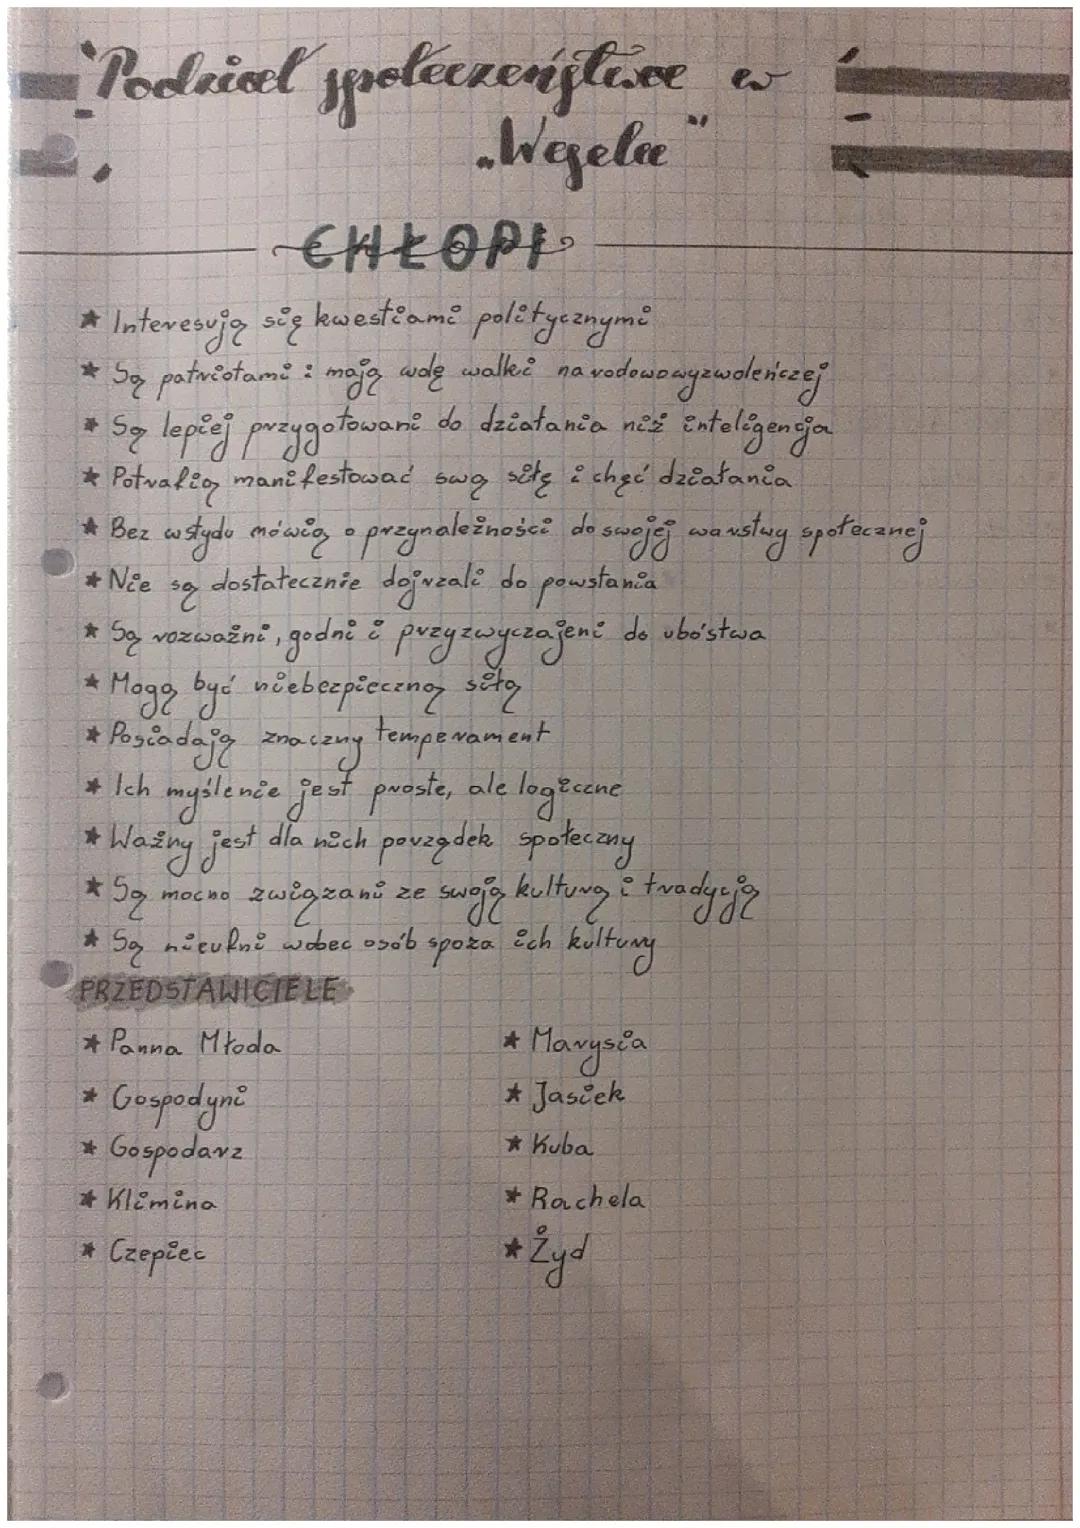 Podział społeczeństwa w
„Weselu"
CHŁOPI
* Interesują się kwestiami politycznymi
* Są patriotami i mają wolę walki narodowowyzwoleńczej
* Są lepiej przygotowani do działania niż inteligencja
* Potrafią manifestować swą siłę i chęć działania
* Bez wstydu mówią o przynależności do swojej warstwy społecznej
* Nie są dostatecznie dojrzali do powstania
* Są rozważni, godni i przyzwyczajeni do ubóstwa
* Mogą być niebezpieczną siłą
* Posiadają znaczny temperament
* Ich myślenie jest proste, ale logiczne
* Ważny jest dla nich porządek społeczny
* Są mocno związani ze swoją kulturą i tradycją
* Są nieufni wobec osób spoza ich kultury
PRZEDSTAWICIELE
* Panna Młoda
* Gospodyni
* Gospodarz
* Klimina
* Czepiec
* Marysia
* Jasiek
* Kuba
* Rachela
* Żyd